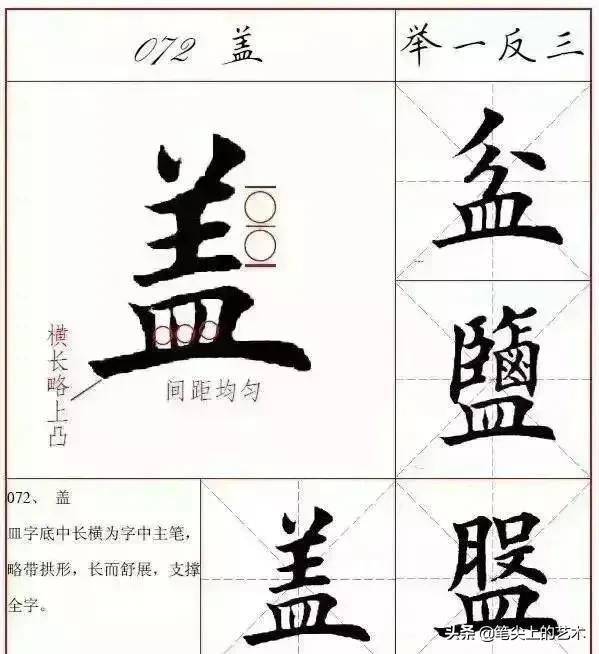 072 盖
举一反三
盖
横长略上凸
间距均匀
盆
鹽
072、 盖
皿字底中长横为字中主笔，
略带拱形，长而舒展，支撑
全字。
盖
盤
头条 @笔尖上的艺术